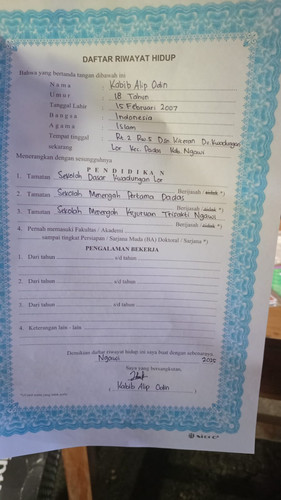 DAFTAR RIWAYAT HIDUP
Bahwa yang bertanda tangan dibawah ini
Nama : Kabib Alip Odin
Umur : 18 Tahun
Tanggal Lahir : 15 Februari 2007
Bangsa : Indonesia
Agama : Islam
Tempat tinggal : Rt. 2 Rw. 5 Dsn Dr. Kwadungan
sekarang Lor Kec. Padas Kab Ngawi
Menerangkan dengan sesungguhnya
PENDIDIKAN
1. Tamatan Sekolah Dasar Kwadungan Lor Berijasah / tidak *)
2. Tamatan Sekolah Menengah Pertama Padas Berijasah / tidak *)
3. Tamatan Sekolah Menengah Kejuruan Ngawi Berijasah / tidak *)
4. Pernah memasuki Fakultas / Akademi
sampai tingkat Persiapan / Sarjana Muda (BA) Doktoral / Sarjana *)
PENGALAMAN BEKERJA
1. Dari tahun s/d tahun
2. Dari tahun s/d tahun
3. Dari tahun s/d tahun
4. Keterangan lain - lain
Demikian daftar riwayat hidup ini saya buat dengan sebenarnya
Ngawi 2025
Saya yang bersangkutan,
( Kabib Alip Odin )